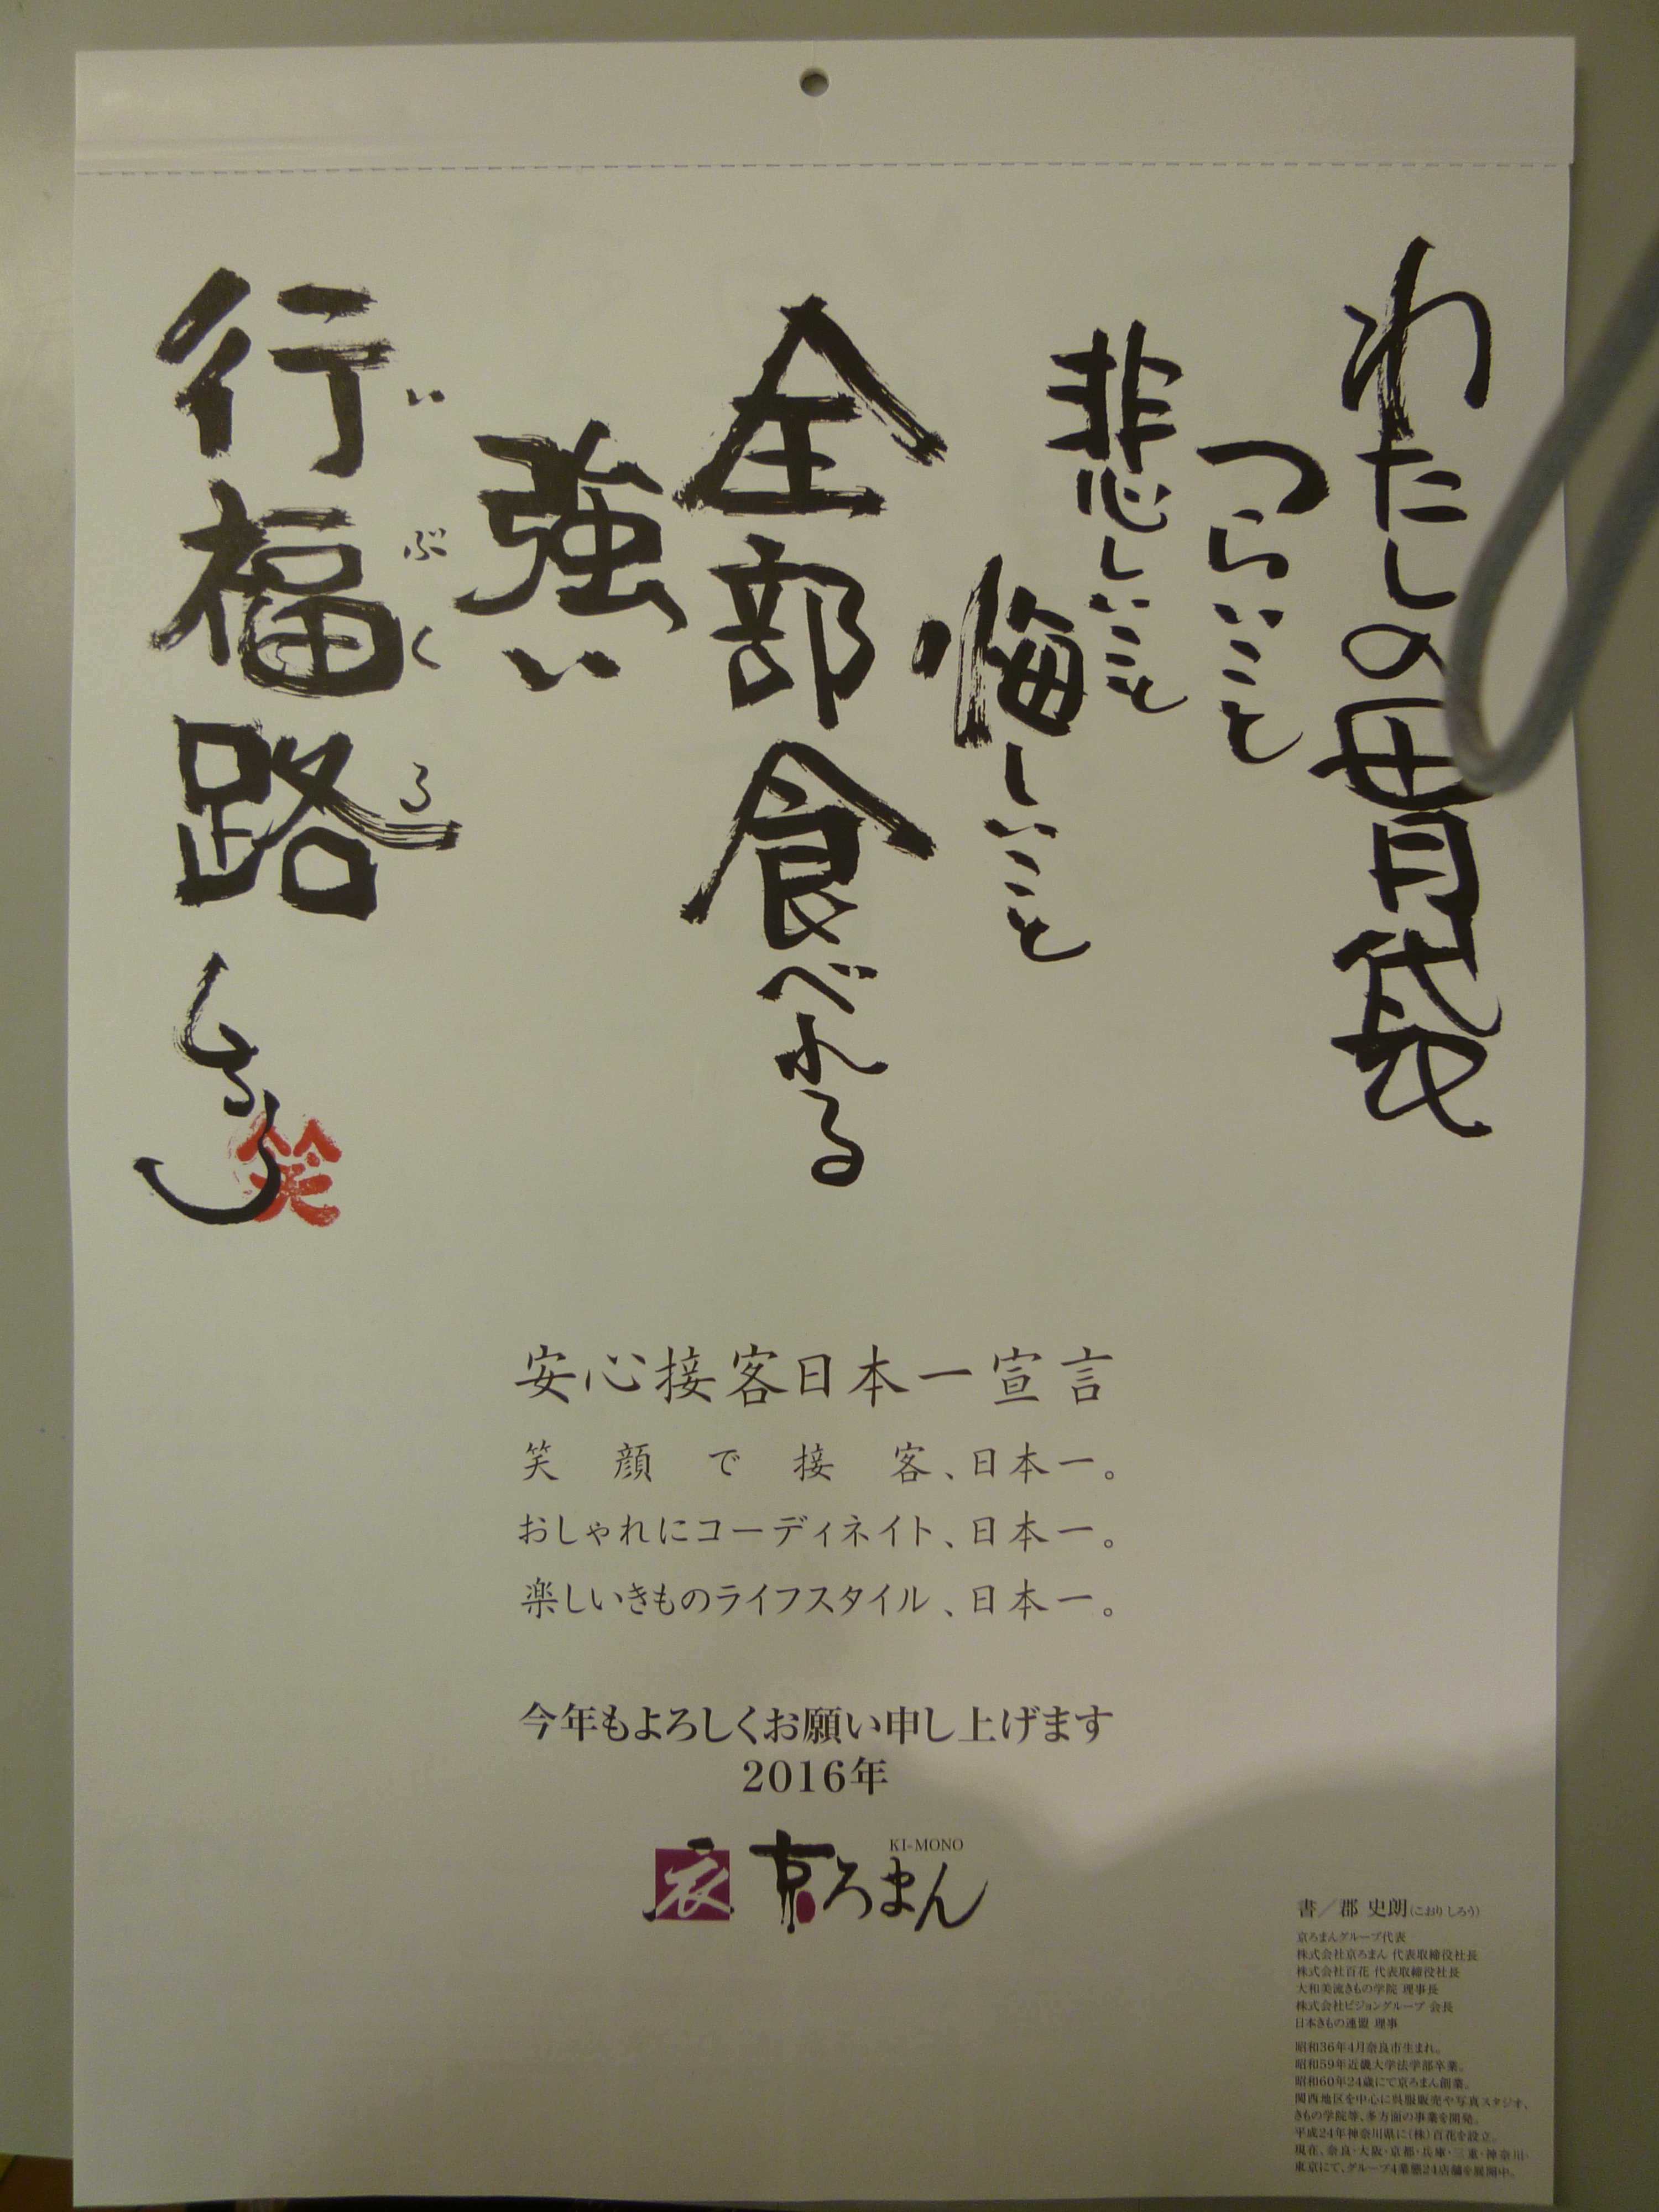 わたしの胃袋
つらいこと
悲しいこと
悔しいこと
全部食べれる
強い
行福路
いぶくろ
笑
安心接客日本一宣言
笑顔で接客、日本一。
おしゃれにコーディネイト、日本一。
楽しいきものライフスタイル、日本一。
今年もよろしくお願い申し上げます
2016年
衣 京ろまん
KI-MONO
書／郡 史朗(こおり しろう)
京ろまんグループ代表
株式会社京ろまん 代表取締役社長
株式会社百花 代表取締役社長
大和美流きもの学院 理事長
株式会社ビジョングループ 会長
日本きもの連盟 理事
昭和36年4月奈良市生まれ。
昭和59年近畿大学法学部卒業。
昭和60年24歳にて京ろまん創業。
関西地区を中心に呉服販売や写真スタジオ、
きもの学院等、多方面の事業を開発。
平成24年神奈川県に(株)百花を設立。
現在、奈良・大阪・京都・兵庫・三重・神奈川・
東京にて、グループ4業態24店舗を展開中。